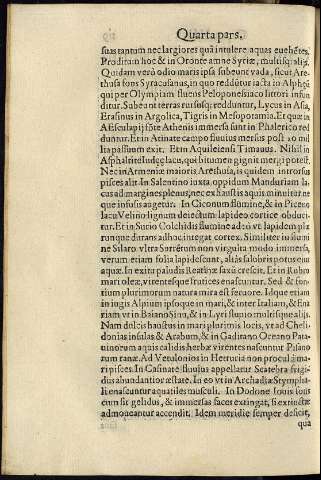 Quarta pars.
suas tantum nec largiores quã intulere aquas euehẽtes.
Proditum hoc & in Oronte amne Syriæ, multisq; alijs.
Quidam verò odio maris ipsa subeunt vada, sicut Are-
thusa fons Syracusanus, in quo redduntur iacta in Alpheũ
qui per Olympiam fluẽs Peloponnesiaco littori infun
ditur. Subeunt terras rursusq; redduntur, Lycus in Asia,
Erasinus in Argolica, Tigris in Mesopotamia. Et quæ in
Æsculapij fõte Athenis immersa sunt in Phalerico red
duntur. Et in Atinate campo fluuius mersus post 20 mil
lia passuum exit. Et in Aquileiensi Timauus. Nihil in
Asphaltite Iudeæ lacu, qui bitumen gignit mergi potest.
Nec in Armeniæ maiori Arethusa, is quidem introrsus
pisces alit. In Salentino iuxta oppidum Manduriam la-
cus ad margines plenus, nec exhaustis aquis minuitur ne
que infusis augetur. In Ciconum flumine, & in Piceno
lacu Velino lignum deiectum lapideo cortice obduci-
tur. Et in Surio Colchidis flumine adeò vt lapidem ple
runque durans adhuc integat cortex. Similiter in flumi
ne Silaro vltra Surrẽtum non virgulta modò immersa,
verum etiam folia lapidescunt, aliàs salobris potus eius
aquæ. In exitu paludis Reatinæ saxũ crescit. Et in Rubro
mari oleæ, virentesque frutices enascuntur. Sed & fon-
tium plurimorum natura mira est feruore. Idque etiam
in iugis Alpium ipsoque in mari, & inter Italiam, & Ena
riam vt in Baiano Sinu, & in Lyri fluuio multisque alijs.
Nam dulcis haustus in mari plurimis locis, vt ad Cheli-
donias insulas & Arabum, & in Gaditano Oceano Pata-
uinorum aquis calidis herbæ virentes nascuntur Pisano
rum ranæ. Ad Vetulonios in Hetruria non procul à ma-
ri pisces. In Casinate fluuius appellatur Scatebra frigi-
dus abundantior æstate. In eo vt in Archadiæ Stympha-
li enascuntur aquatiles musculi. In Dodone Iouis fons
cum sit gelidus, & immersas faces extingat, si extinctæ
admoueantur accendit. Idem meridie semper deficit,
qua